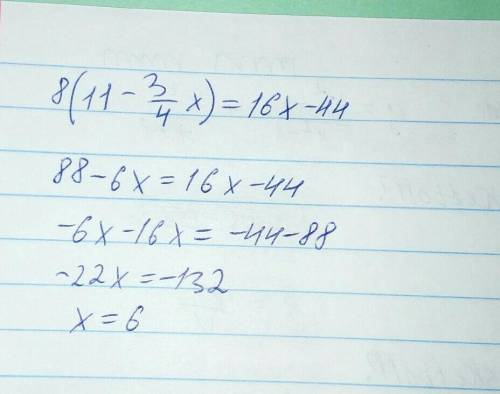 8(11 - 3/4 x) = 16x - 44
88 - 6x = 16x - 44
-6x - 16x = -44 - 88
-22x = -132
x = 6